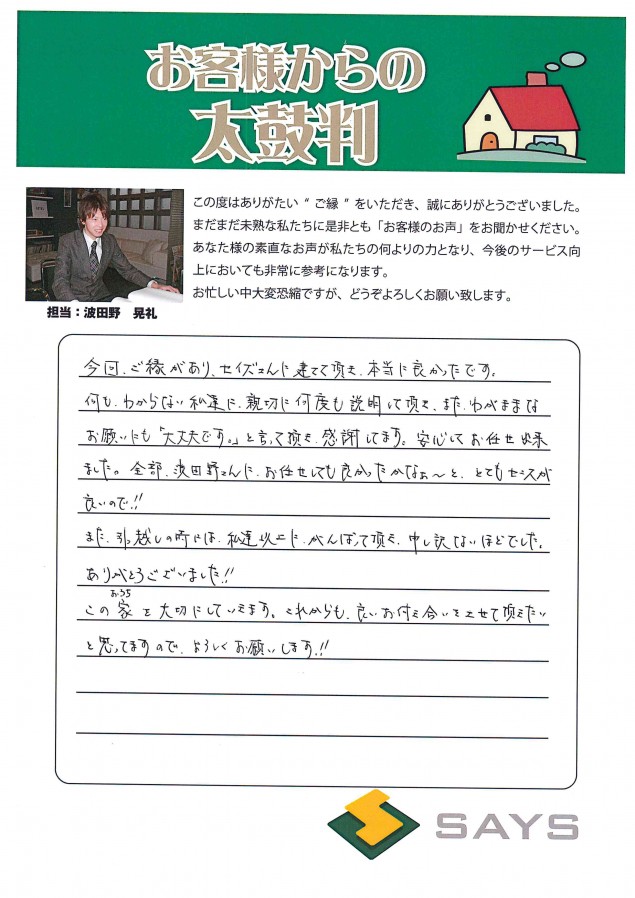 お客様からの
太鼓判
この度はありがたい“ご縁”をいただき、誠にありがとうございました。
まだまだ未熟な私たちに是非とも「お客様のお声」をお聞かせください。
あなた様の素直なお声が私たちの何よりの力となり、今後のサービス向
上においても非常に参考になります。
お忙しい中大変恐縮ですが、どうぞよろしくお願い致します。
担当：波田野 晃礼
今回、ご縁があり、セイズさんに建てて頂き、本当に良かったです。
何も、わからない私達に、親切に何度も説明して頂き、また、わがままな
お願いにも「大丈夫です。」と言って頂き、感謝してます。安心してお任せ出来
ました。全部、波田野さんに、お任せしても良かったかなぁ〜と、とてもセンスが
良いので!!
また、引っ越しの時には、私達以上に、がんばって頂き、申し訳ないほどでした。
ありがとうございました!!
おうち
この家を大切にしていきます。これからも、良いお付き合いをさせて頂きたい
と思ってますので、よろしくお願いします!!
SAYS